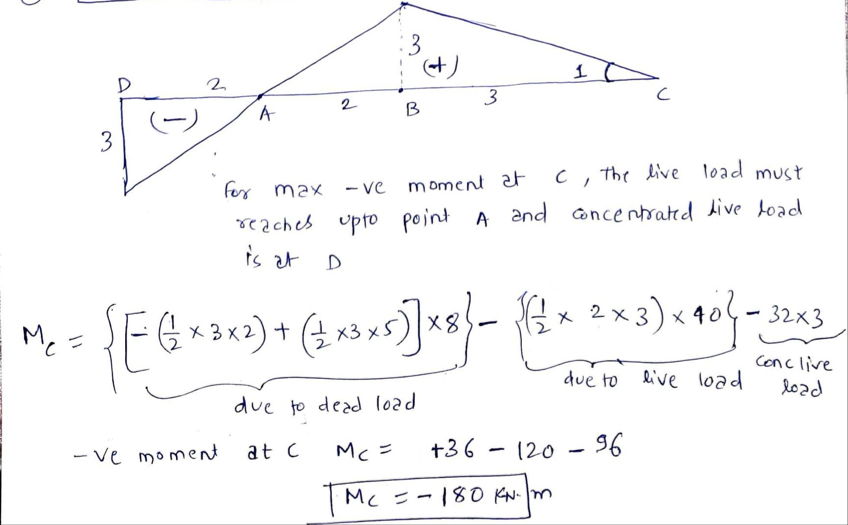 3
(+)
1
D
2
A
2
B
3
C
(-)
3
For max -ve moment at C, the live load must
reaches upto point A and concentrated live load
is at D
Mc = {[-(1/2 × 3×2) + (1/2 ×3 ×5)] ×8} - {(1/2 × 2×3) × 40} - 32×3
due to dead load
due to live load
conc live
load
-ve moment at C Mc = +36 - 120 - 96
Mc = -180 KN.m